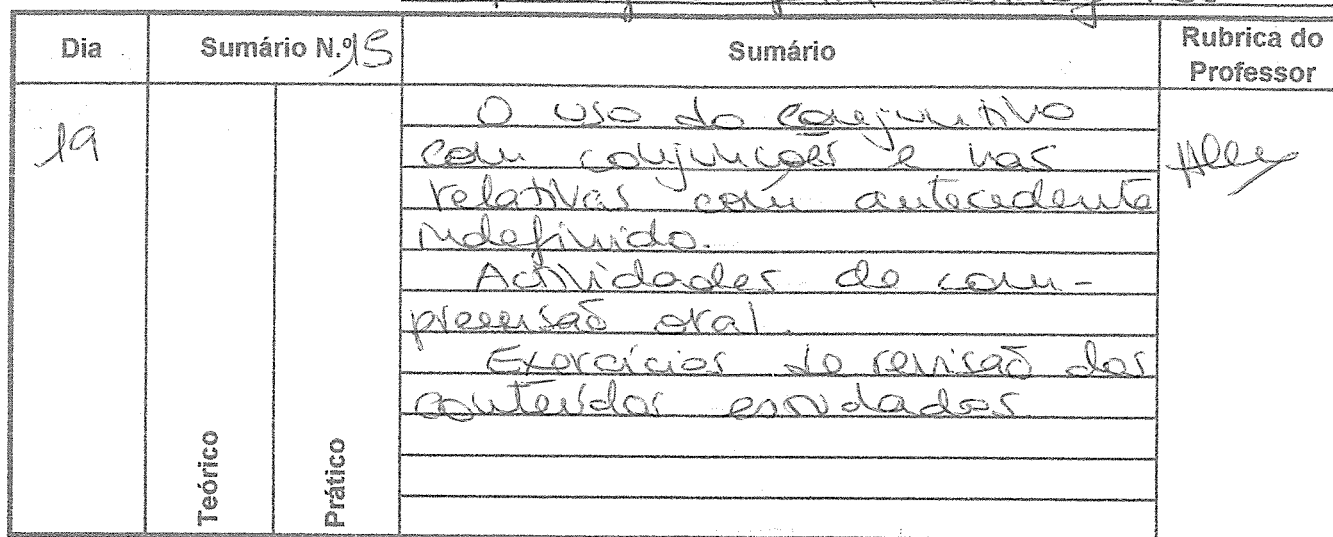 Dia
Sumário N.º 15
Sumário
Rubrica do
Professor
19
O uso do conjuntivo
com conjunções e nas
relativas com antecedente
indefinido.
Actividades de com-
preensão oral.
Exercícios de revisão dos
conteúdos estudados
Teórico
Prático